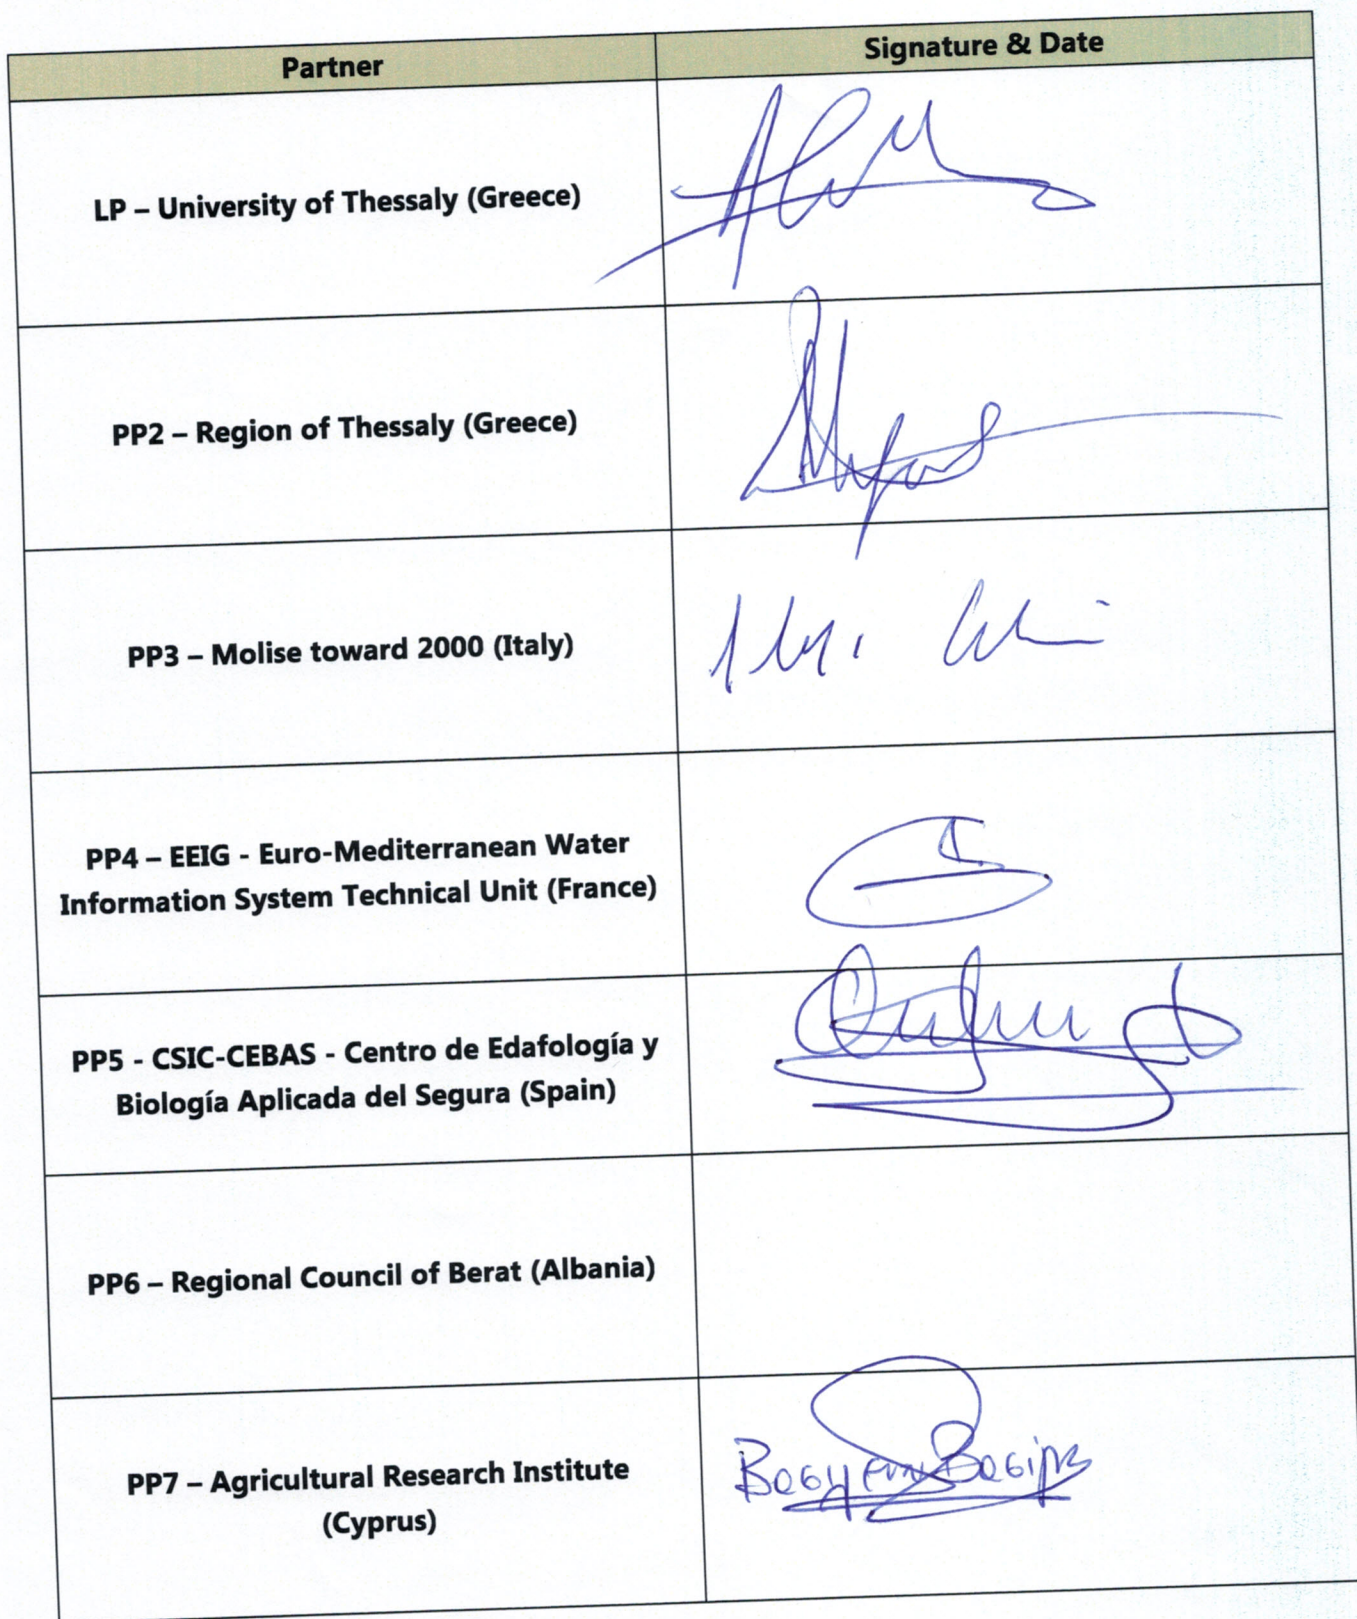 Partner
Signature & Date
LP – University of Thessaly (Greece)
PP2 – Region of Thessaly (Greece)
PP3 – Molise toward 2000 (Italy)
PP4 – EEIG - Euro-Mediterranean Water
Information System Technical Unit (France)
PP5 - CSIC-CEBAS - Centro de Edafología y
Biología Aplicada del Segura (Spain)
PP6 – Regional Council of Berat (Albania)
PP7 – Agricultural Research Institute
(Cyprus)